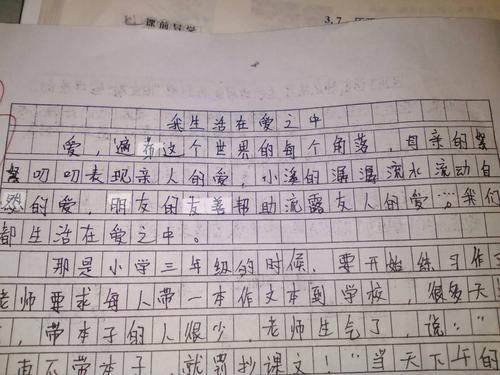 课前导学
3.7
我生活在爱之中
爱，遍布这个世界的每个角落，母亲的絮
絮叨叨表现亲人的爱，小溪的潺潺流水流动自
然的爱，朋友的友善帮助流露友人的爱……我们
都生活在爱之中。
那是小学三年级的时候，要开始练习作文
老师要求每人带一本作文本到学校，很多天
，带本子的人很少，老师生气了，说：“
再不带本子，就罚抄课文！”当天下午的